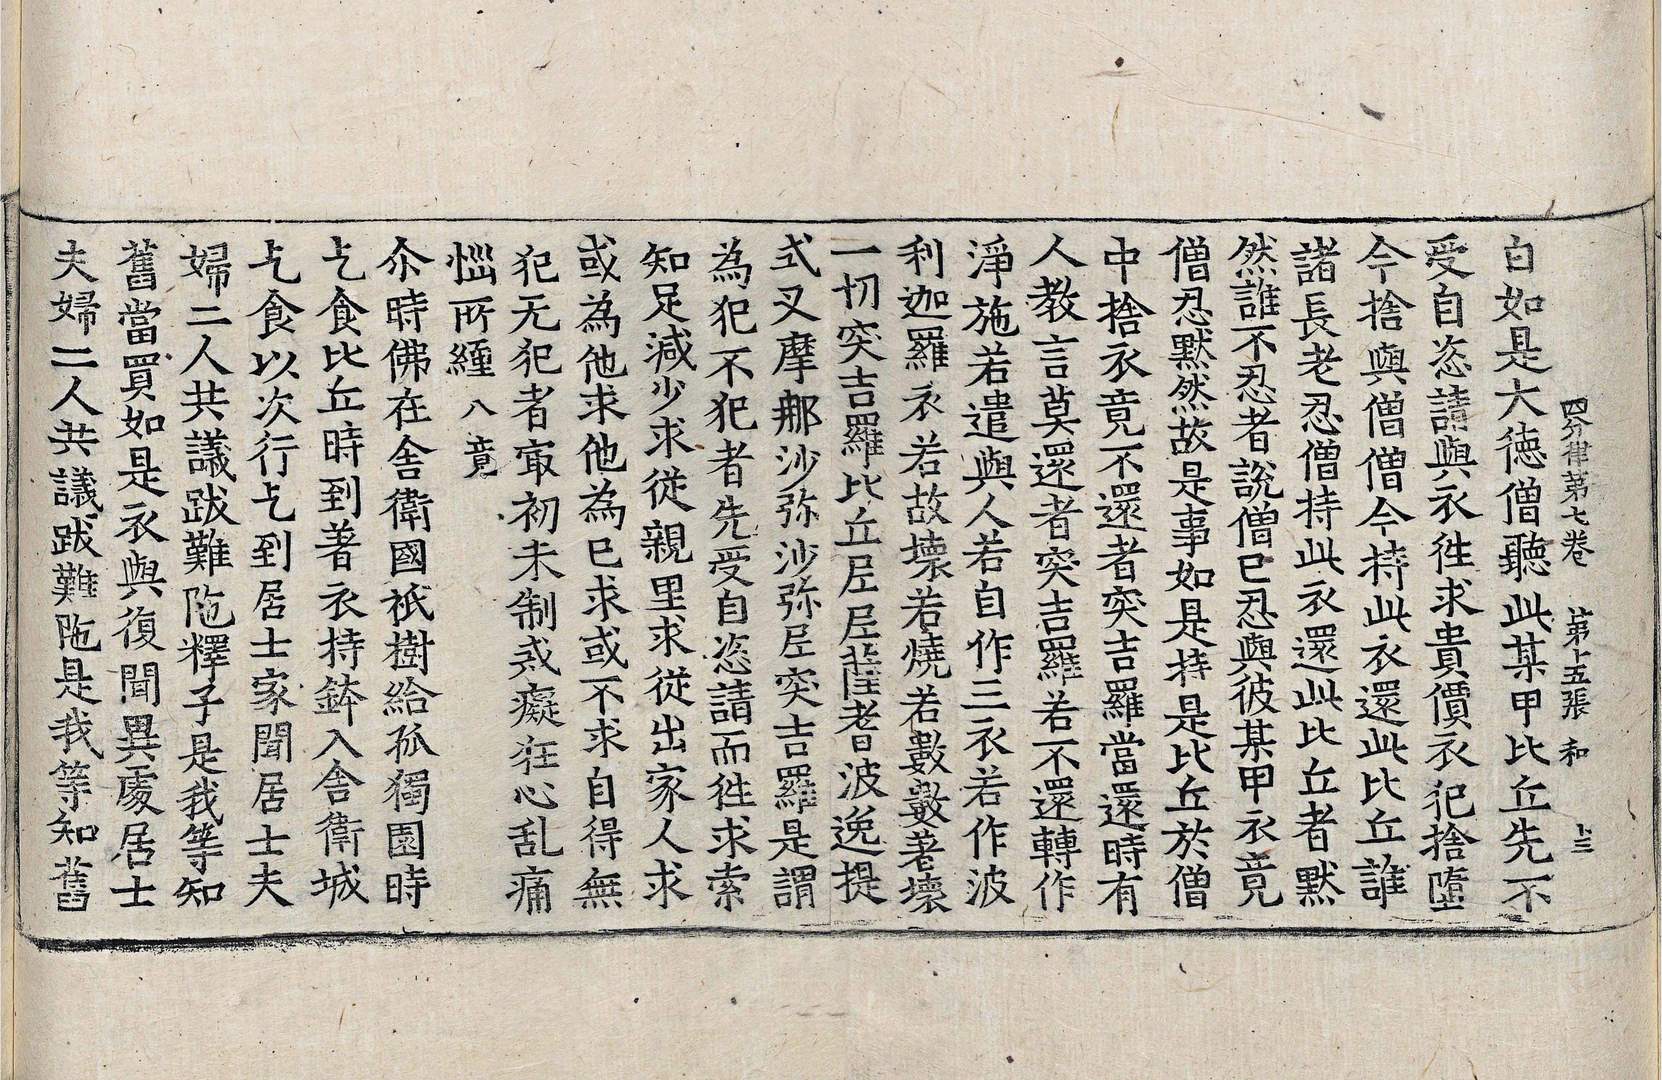 四分律第七卷　第十五張　和　上三
白如是大德僧聽此某甲比丘先不
受自恣請與衣徃求貴價衣犯捨墮
今捨與僧僧今持此衣還此比丘誰
諸長老忍僧持此衣還此比丘者默
然誰不忍者說僧已忍與彼某甲衣竟
僧忍默然故是事如是持是比丘於僧
中捨衣竟不還者突吉羅當還時有
人教言莫還者突吉羅若不還轉作
淨施若遣與人若自作三衣若作波
利迦羅衣若故壞若燒若數數著壞
一切突吉羅比丘尼尼薩耆波逸提
式叉摩那沙弥沙弥尼突吉羅是謂
為犯不犯者先受自恣請而徃求索
知足減少求從親里求從出家人求
或為他求他為己求或不求自得無
犯无犯者㝡初未制戒癡狂心乱痛
惱所纏 八竟
尒時佛在舍衛國祇樹給孤獨園時
乞食比丘時到著衣持鉢入舍衛城
乞食以次行乞到居士家聞居士夫
婦二人共議跋難陁釋子是我等知
舊當買如是衣與復聞異處居士
夫婦二人共議跋難陁是我等知舊